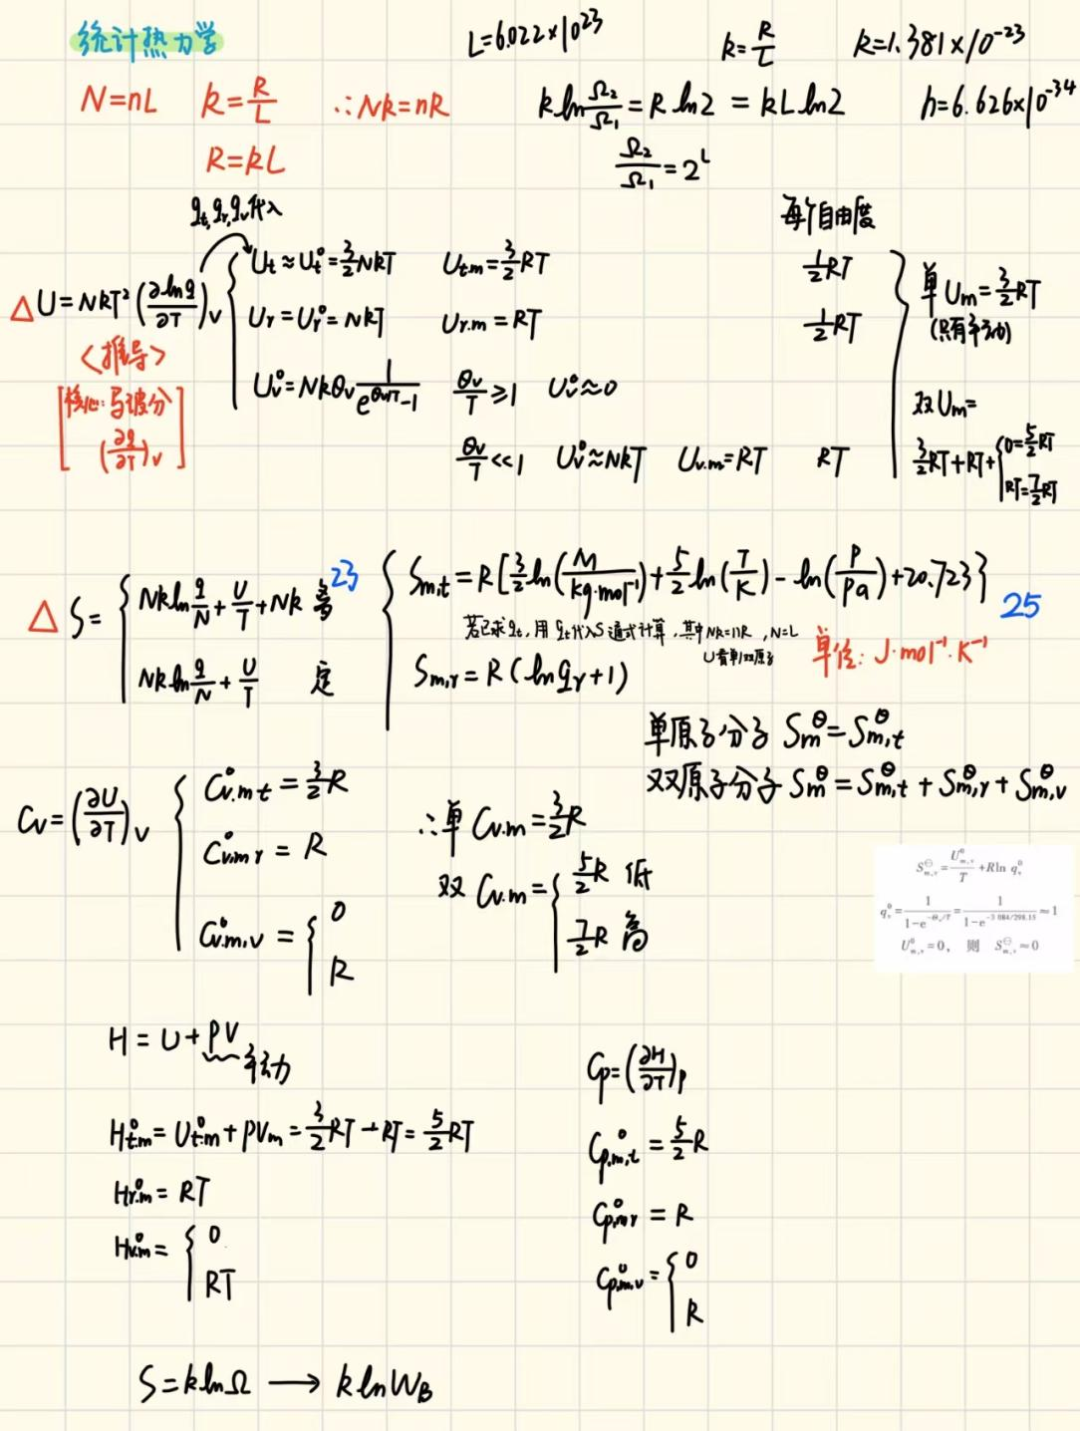 统计热力学
L=6.022×10²³
k=R/L
k=1.381×10⁻²³
N=nL k=R/L ∴Nk=nR
k ln Ω₂/Ω₁ = R ln2 = kL ln2
h=6.626×10⁻³⁴
R=kL
Ω₂/Ω₁=2ᴸ
qt,qr,qv代入
每个自由度
△ U=NkT²(∂lnq/∂T)v
Ut≈Ut⁰=3/2NkT Ut.m=3/2RT 1/2RT
Ur=Ur⁰=NkT Ur.m=RT 1/2RT
Uv⁰=Nkθv 1/(e^(θv/T)-1) θv/T≥1 Uv⁰≈0
θv/T<<1 Uv⁰≈NkT Uv.m=RT RT
<推导>
[核心:与配分
(∂q/∂T)v]
单Um=3/2RT
(只有平动)
双Um=
3/2RT+RT+{0=5/2RT
RT=7/2RT
△ S=
Nk ln q/N + U/T + Nk 离 23
Nk ln q/N + U/T 定
Sm,t=R[3/2 ln(M/kg·mol⁻¹)+5/2 ln(T/K)-ln(P/Pa)+20.723} 25
若已求qt,用qt代入S通式计算,其中Nk=nR,N=L
U看单/双原子
单位:J·mol⁻¹·K⁻¹
Sm,r=R(lnqr+1)
单原子分子 Smᶿ=Sm,tᶿ
双原子分子 Smᶿ=Sm,tᶿ+Sm,rᶿ+Sm,vᶿ
Cv=(∂U/∂T)v
Cv.m t⁰=3/2R
Cv.m r⁰=R
Cv.m,v⁰={0
R
∴单Cv.m=3/2R
双Cv.m={5/2R 低
7/2R 高
S⊖m,v=U⁰m,v/T+Rln q⁰v
q⁰v=1/(1-e^(-Θv/T))=1/(1-e^(-3 084/298.15))≈1
U⁰m,v=0, 则 S⊖m,v≈0
H=U+PV
平动
Ht.m⁰=Ut.m⁰+PVm=3/2RT+RT=5/2RT
Hr.m⁰=RT
Hv.m⁰={0
RT
Cp=(∂H/∂T)p
Cp,m,t⁰=5/2R
Cp,m,r⁰=R
Cp,m,v⁰={0
R
S=klnΩ → klnWB